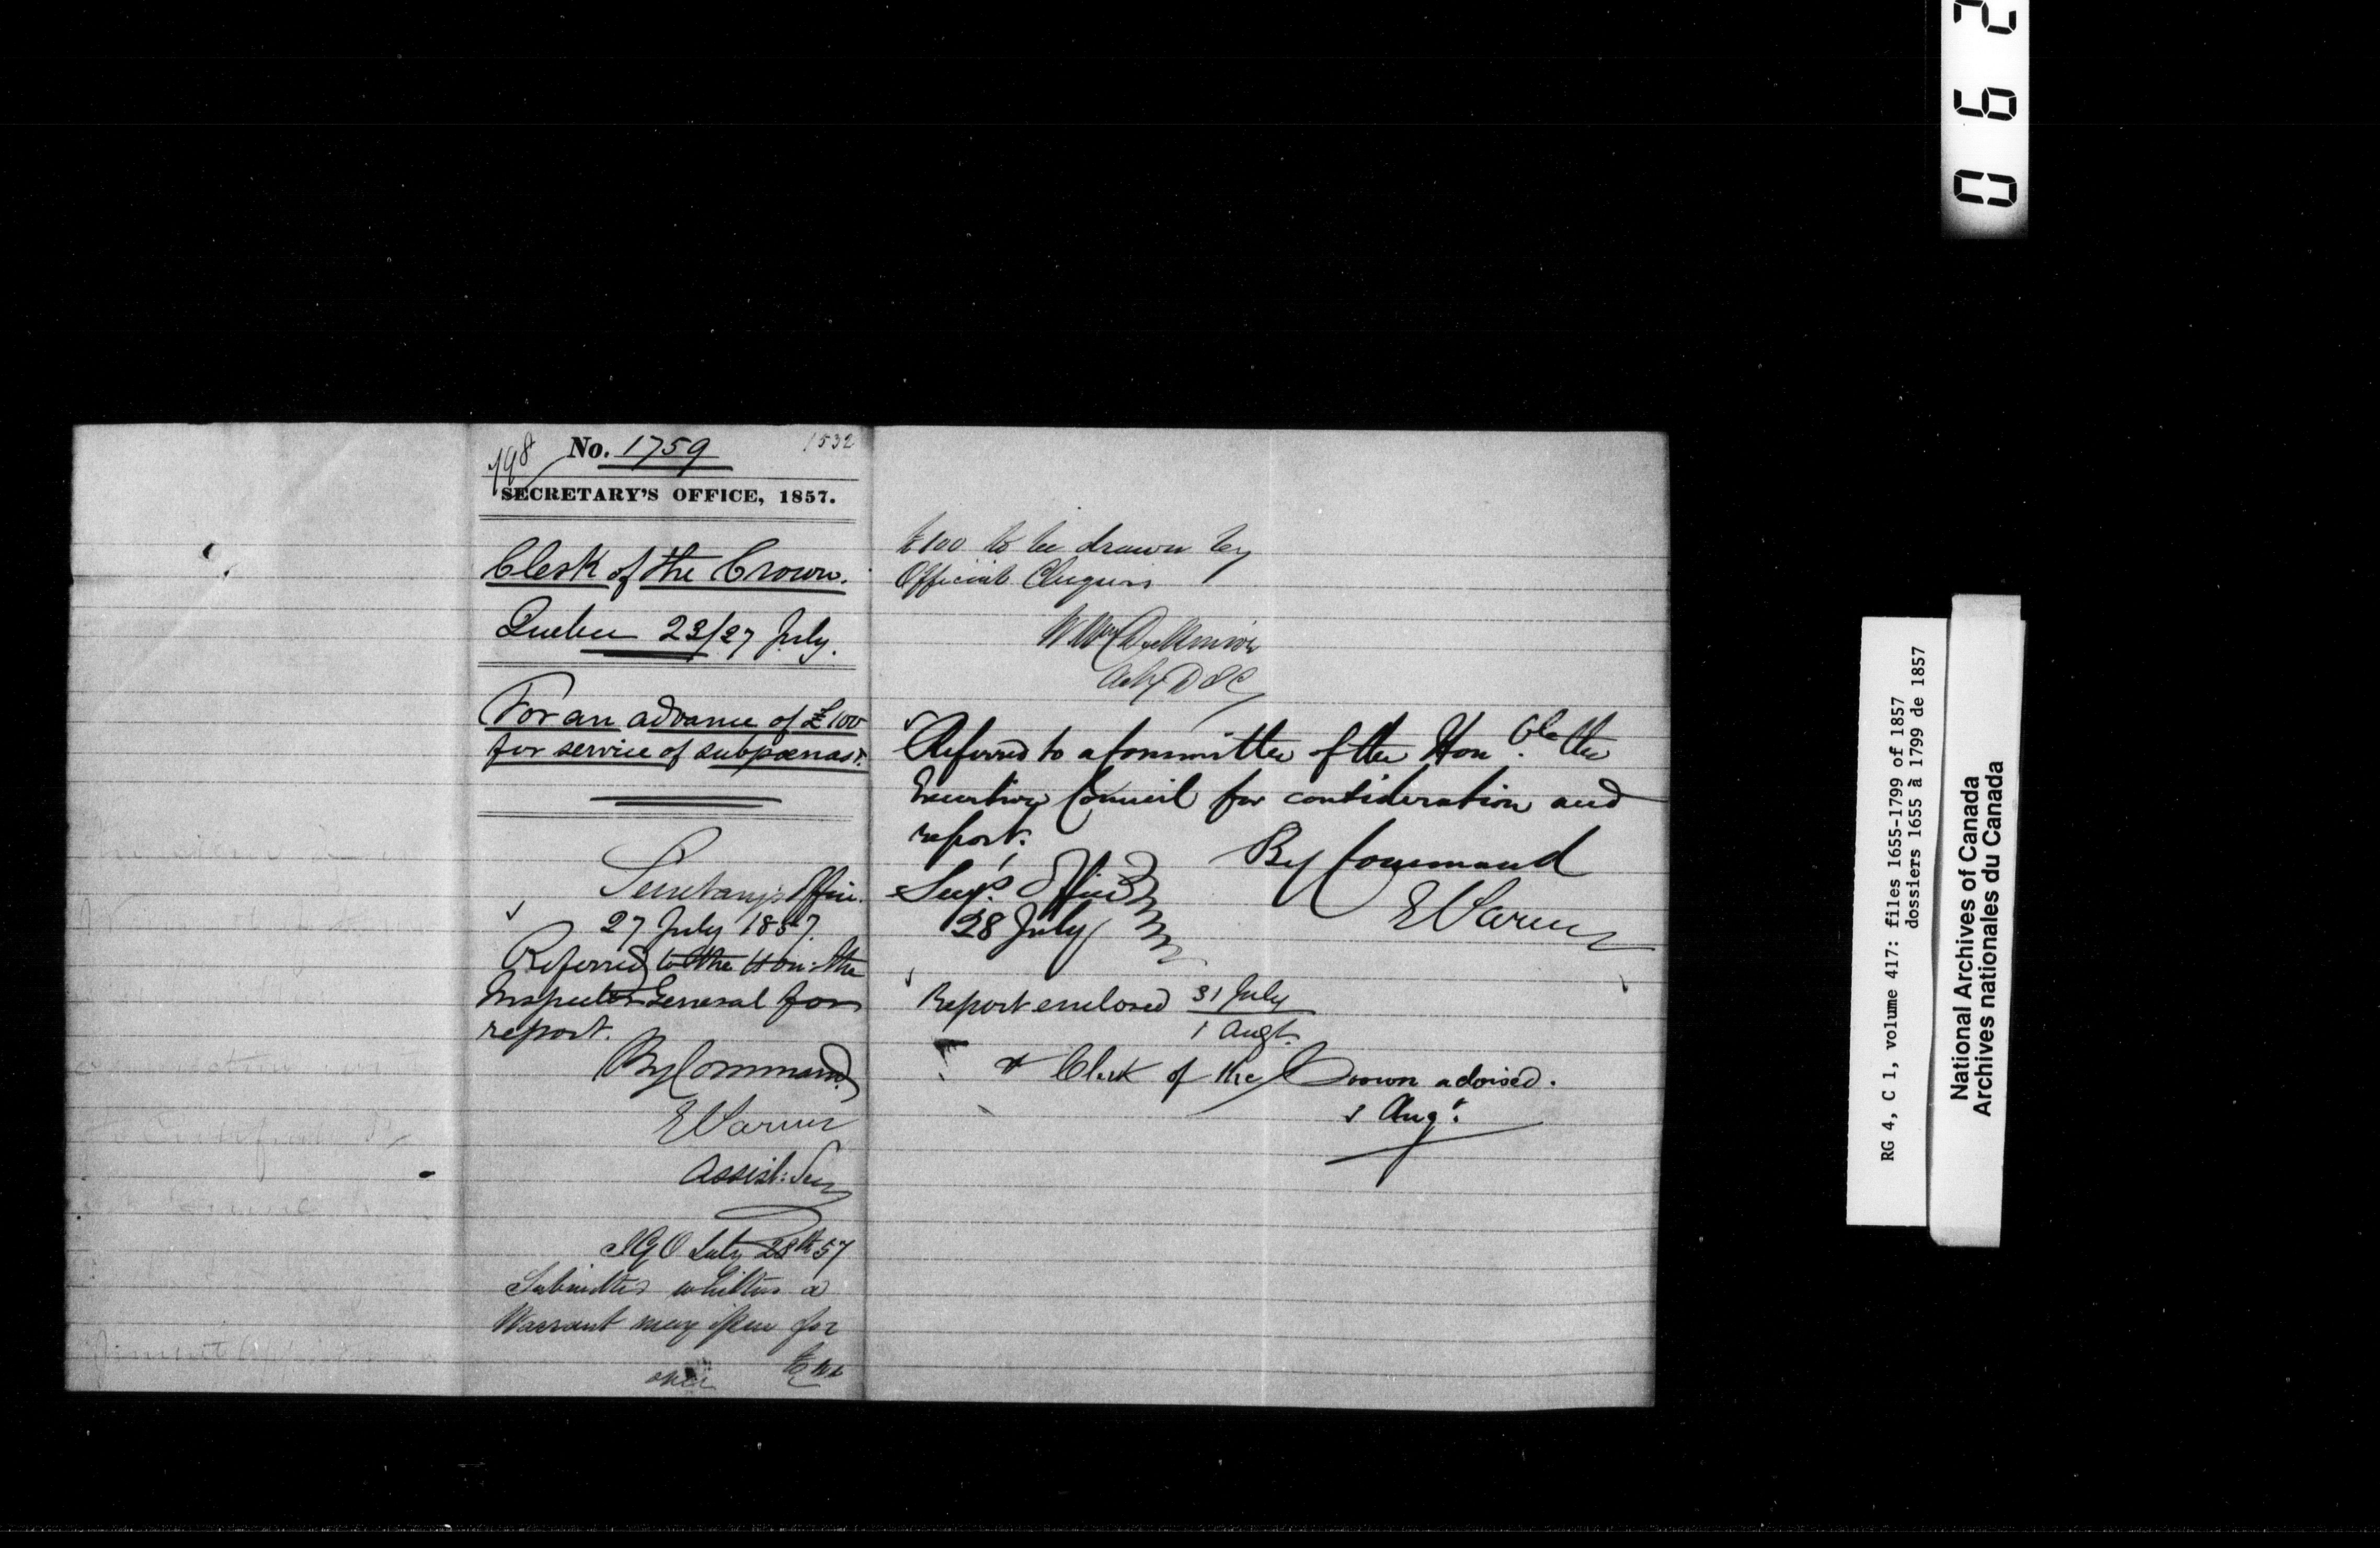 798
No. 1759
1532
SECRETARY'S OFFICE, 1857.
Clerk of the Crown.
Quebec 23/27 July.
For an advance of £100
for service of subpœnas.
Secretary's Office.
27 July 1857.
Referred to the Hon: the
Inspector General for
report.
By Command
Assist: Secy
IGO July 28th 57
Submitted whether a
Warrant may issue for
£100
over
£100 to be drawn by
Official Cheques
Wm Dickinson
Actg D I G
Referred to a Committee of the Honble the
Executive Council for consideration and
report.
By Command
Secy's Office
28 July
Report enclosed 31 July
1 Augt.
& Clerk of the Crown advised.
1 Augt.
062
RG 4, C 1, volume 417: files 1655-1799 of 1857
dossiers 1655 à 1799 de 1857
National Archives of Canada
Archives nationales du Canada